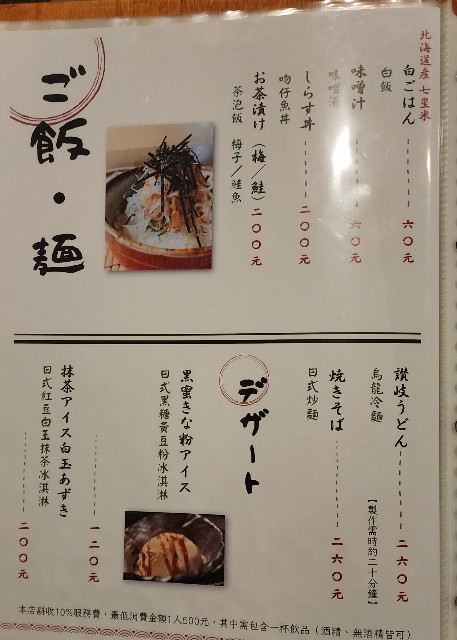 北海道産 七星米
白ごはん 六〇元
白飯
味噌汁 六〇元
味噌湯
しらす丼 二〇〇元
吻仔魚丼
お茶漬け（梅／鮭） 二〇〇元
茶泡飯 梅子／鮭魚
ご飯・麺
讃岐うどん 二六〇元
烏龍冷麵 【製作需時約二十分鐘】
焼きそば 二六〇元
日式炒麵
デザート
黒蜜きな粉アイス 一二〇元
日式黑糖黃豆粉冰淇淋
抹茶アイス白玉あずき 二〇〇元
日式紅豆白玉抹茶冰淇淋
本店酌收10%服務費，最低消費金額1人500元，其中需包含一杯飲品（酒精、無酒精皆可）